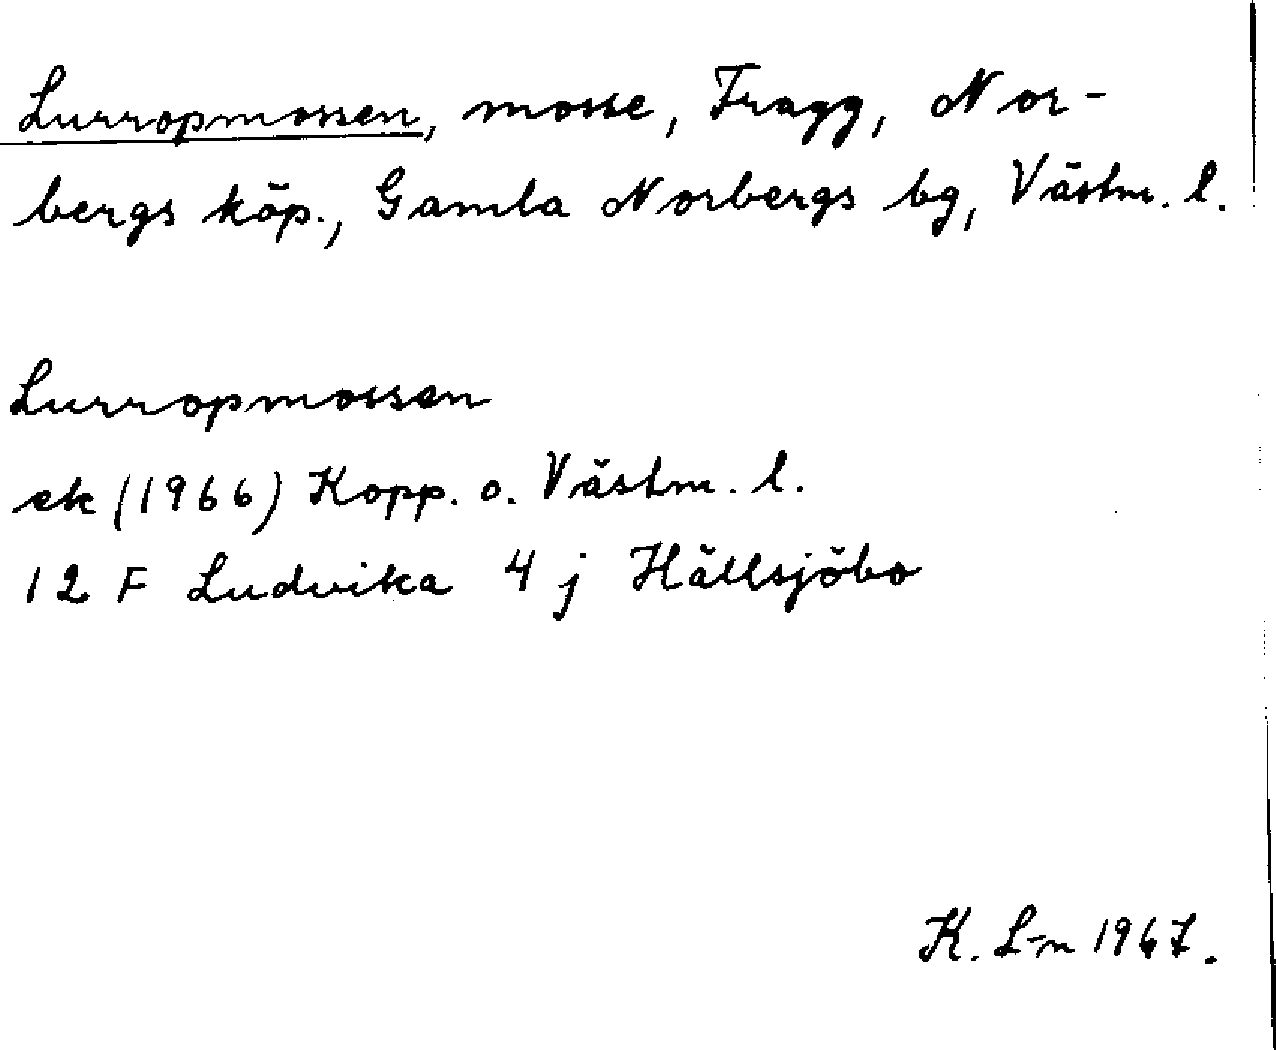 Lurropmossen, mosse, Tragg, Nor-
bergs köp., Gamla Norbergs bg, Västm. l.
Lurropmossen
ek (1966) Kopp. o. Västm. l.
12 F Ludvika 4 j Hällsjöbo
K. L-n 1967.